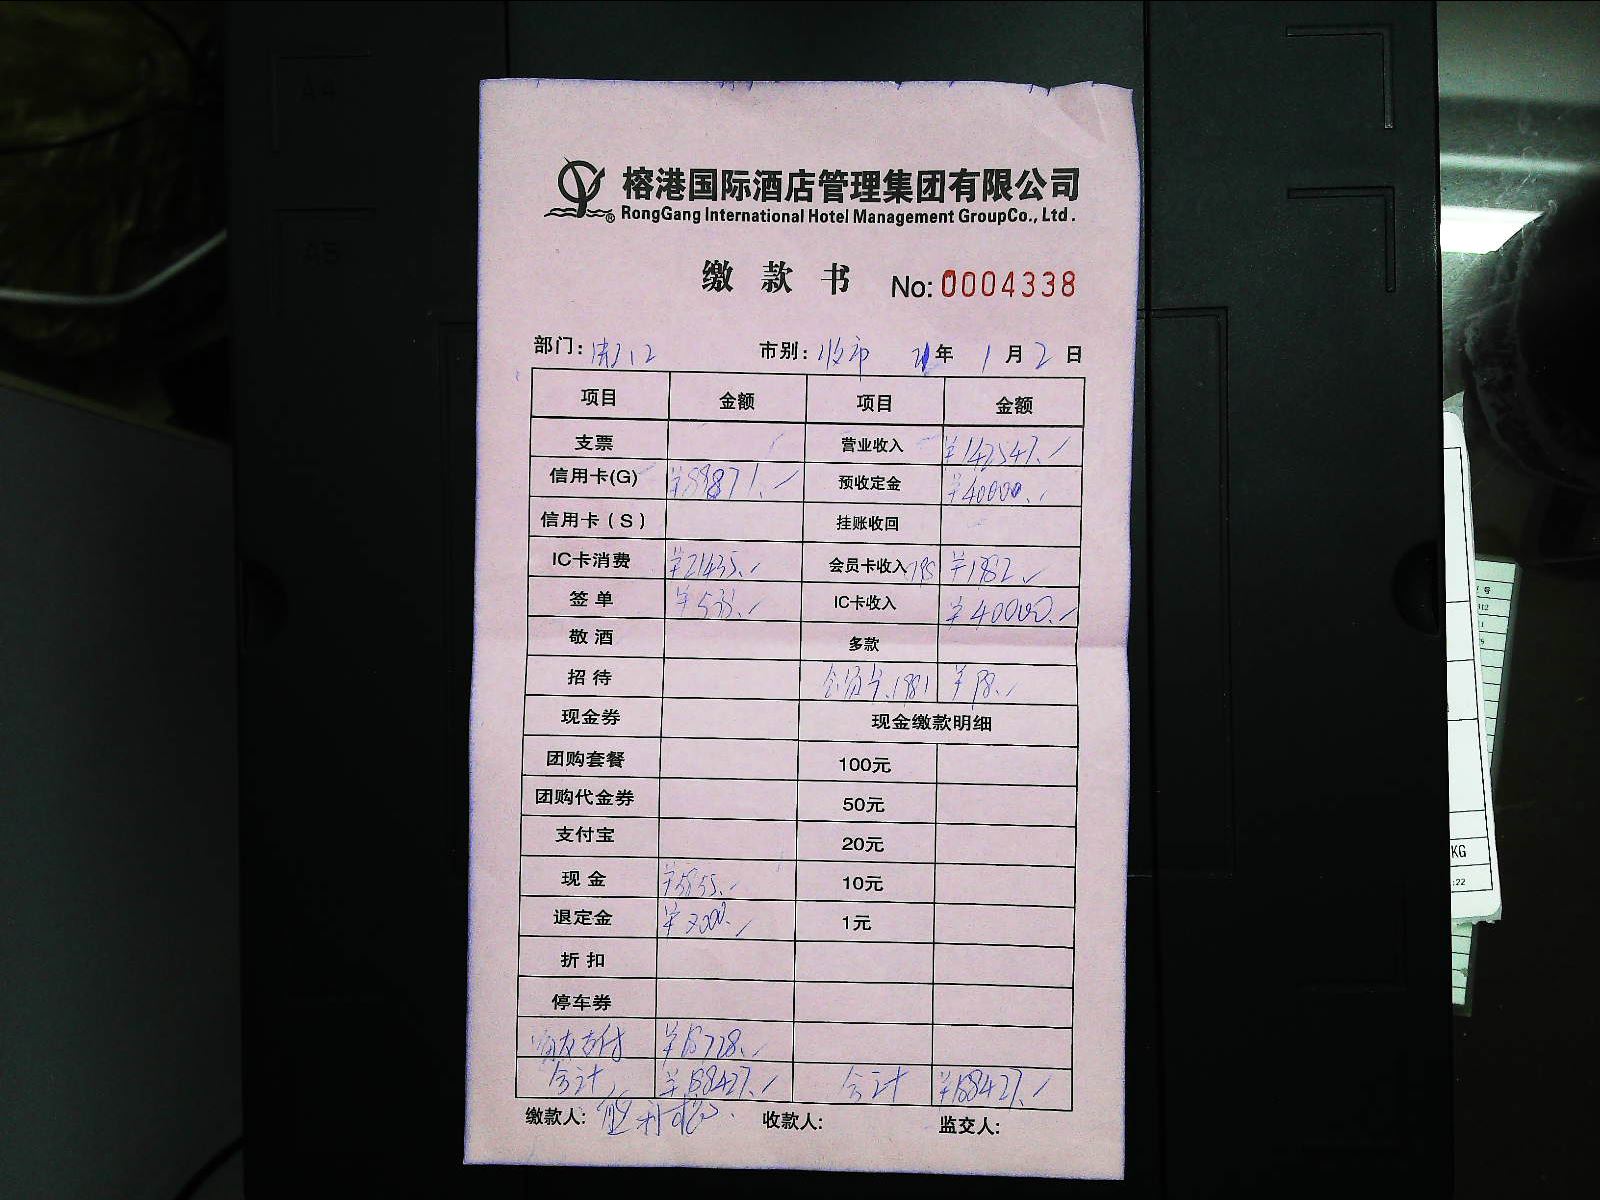 榕港国际酒店管理集团有限公司
RongGang International Hotel Management GroupCo., Ltd.
缴款书 No: 0004338
部门: 市别: 收市 21年 1月 2日
项目 金额 项目 金额
支票 营业收入 ¥142547.
信用卡(G) 预收定金 ¥40000.
信用卡(S) 挂账收回
IC卡消费 ¥21435. 会员卡收入
签单 IC卡收入 ¥40000.
敬酒 多款
招待 会员卡 ¥98.
现金券 现金缴款明细
团购套餐 100元
团购代金券 50元
支付宝 20元
现金 10元
退定金 1元
折扣
停车券
支付
合计 合计
缴款人: 收款人: 监交人:
A4
A5
KG
:22